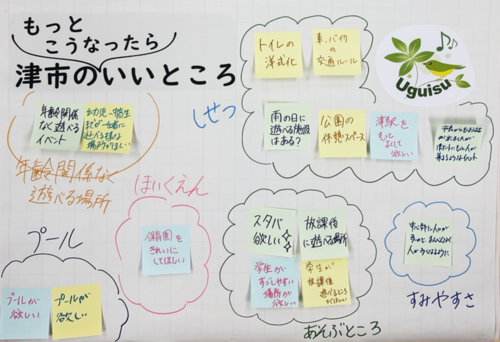 もっと
こうなったら
津市のいいところ
トイレの
洋式化
車、バイクの
交通ルール
Uguisu
しせつ
年齢関係
なく遊べる
イベント
雨の日に
遊べる施設
はある?
公園の
休憩スペース
津駅を
もっと
よくして
欲しい
年齢関係なく
遊べる場所
ほいくえん
保育園を
きれいにして
ほしい
スタバ
欲しい
放課後
に遊べる場所
学生が
すごしやすい
場所が
欲しい
学生が
放課後
あそぶところ
すみやすさ
プール
プールが
欲しい
プールが
欲しい